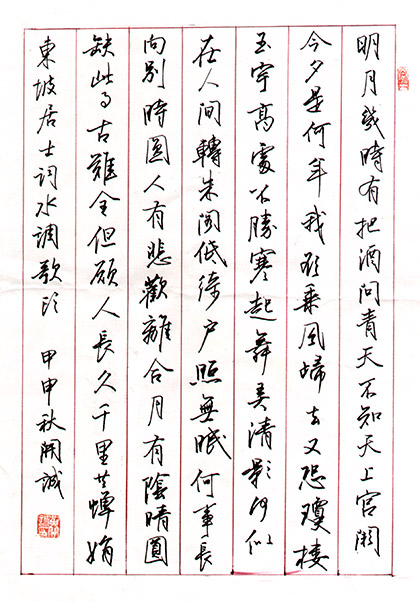 明月幾時有把酒问青天不知天上宫闕
今夕是何年我欲乘风歸去又恐瓊樓
玉宇高處不勝寒起舞弄清影何似
在人间轉朱阁低绮户照無眠何事長
向别時圓人有悲歡離合月有陰晴圓
缺此事古難全但願人長久千里共嬋娟
東坡居士词水调歌头 甲申秋開誠